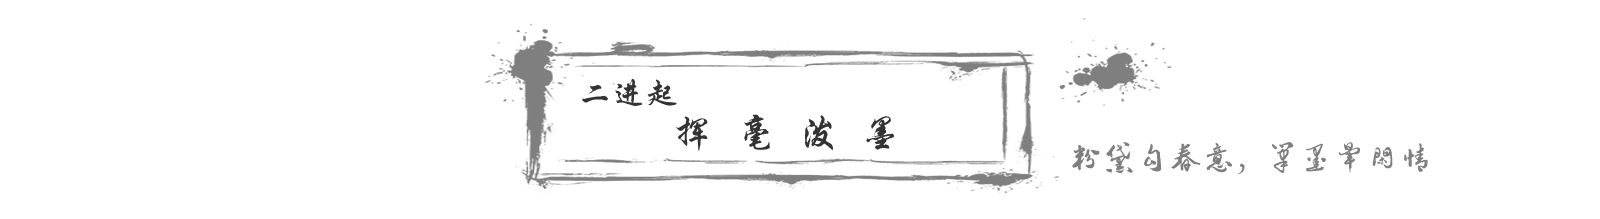 二进起
挥毫泼墨
粉黛勾春意，笔墨晕闲情